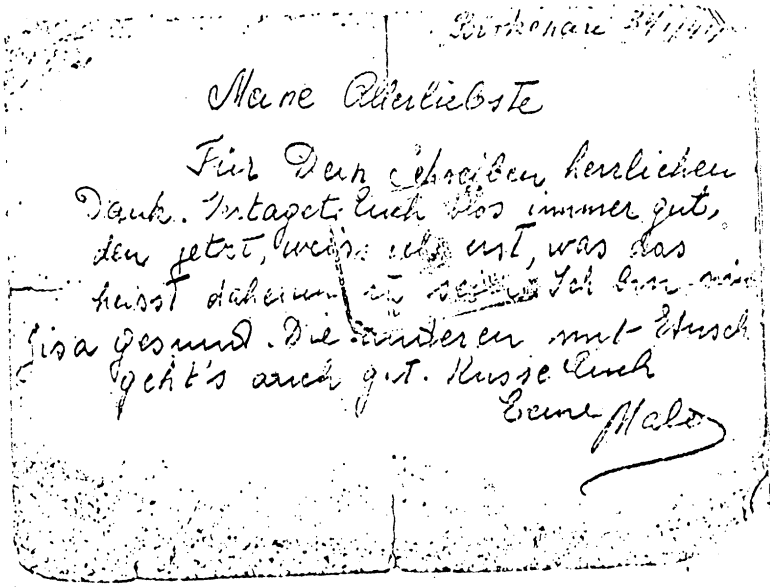 Birkenau
Meine Allerliebste
Für Dein Schreiben herzlichen
Dank. Euch blos immer gut,
den jetzt, weiss ich erst, was das
heisst daheim zu sein. Ich bin
Gisa gesund. Die anderen mit Etusch
geht's auch gut. Küsse Euch
Eeine Mala